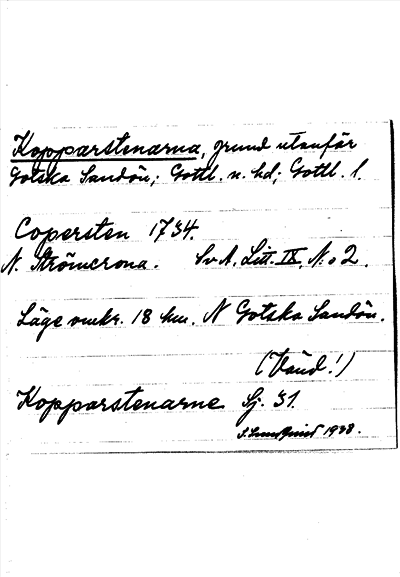 Kopparstenarna, grund utanför
Gotska Sandön; Gottl. n. hd; Gottl. l.
Copersten 1734.
N. Strömcrona. SvA. Litt. IX, N:o 2.
Läge omkr. 18 km. N Gotska Sandön.
(Vänd!)
Kopparstenarne Sj. 31.
1938.